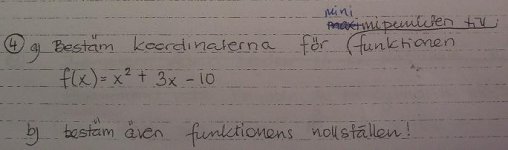 mini
maximipunkten till
④ a) Bestäm koordinaterna för funktionen
f(x) = x² + 3x - 10
b) bestäm även funktionens nollställen!